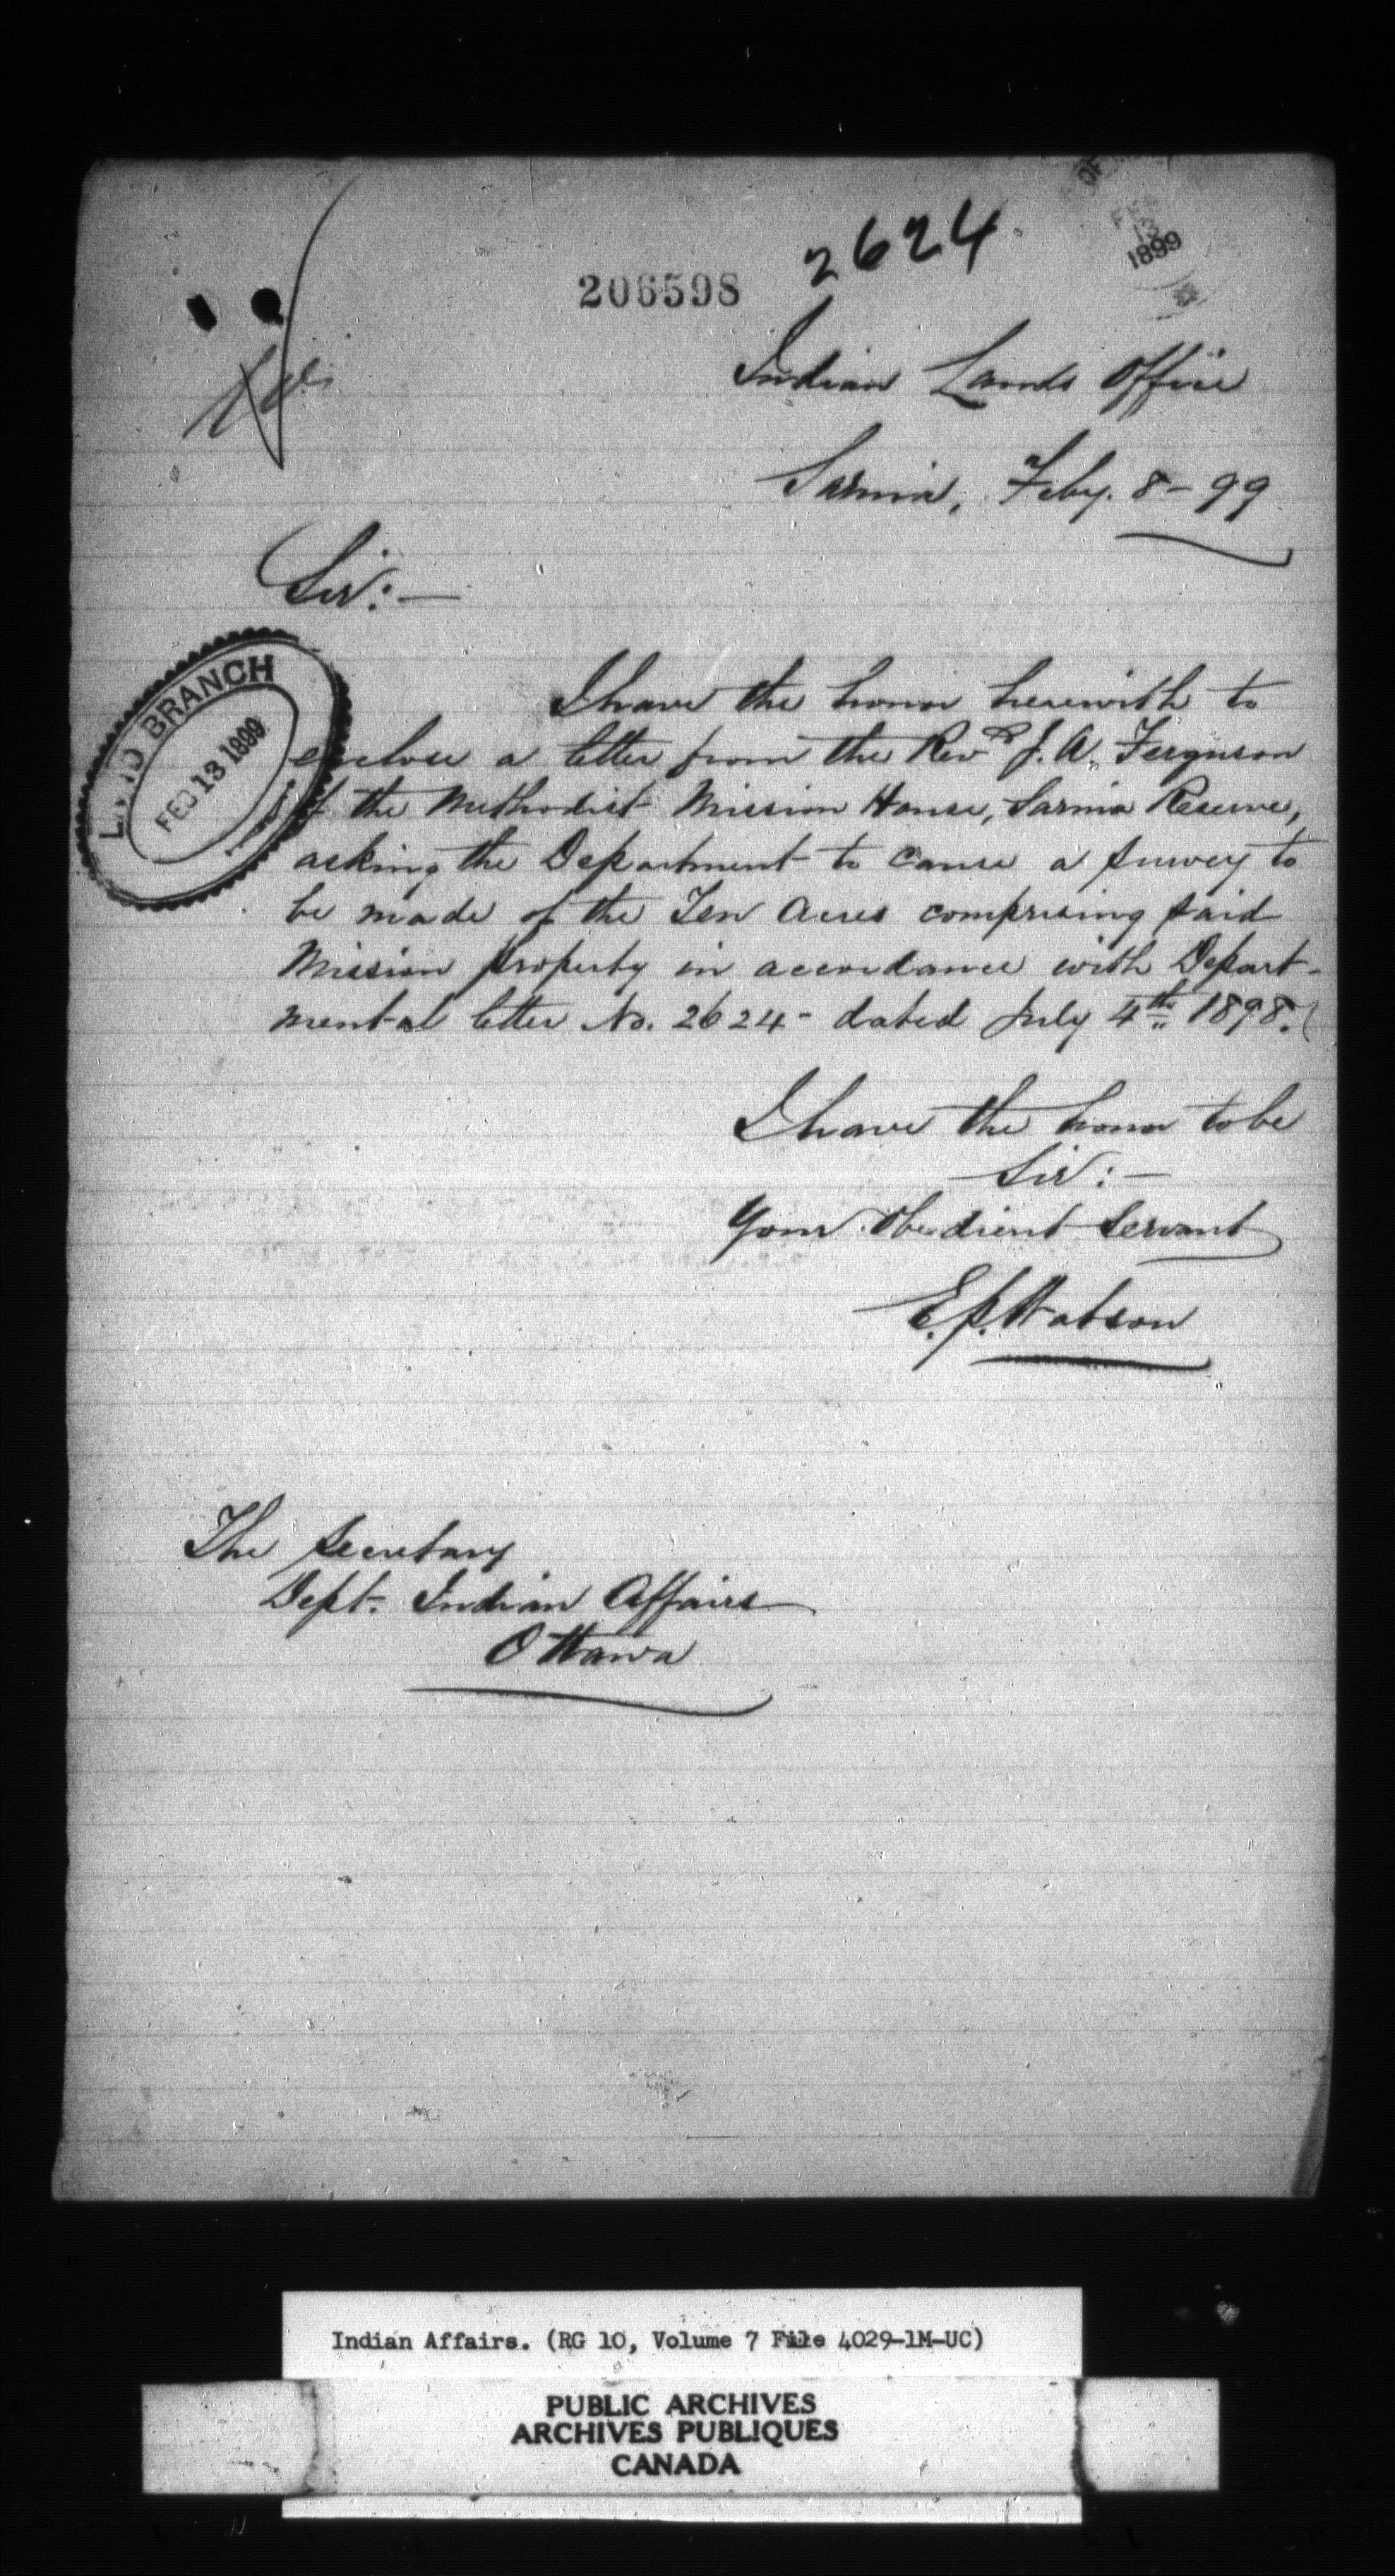 2624
206598
FEB
13
1899
Indian Lands Office
Sarnia, Feby. 8 - 99
Sir:—
LAND BRANCH
FEB 13 1899
I have the honor herewith to
enclose a letter from the Revd J. A. Ferguson
of the Methodist Mission House, Sarnia Reserve,
asking the Department to cause a survey to
be made of the Ten Acres comprising said
Mission property in accordance with Depart-
mental letter No. 2624 - dated July 4th 1898.
I have the honor to be
Sir:—
Your Obedient Servant
E. P. Watson
The Secretary
Dept. Indian Affairs
Ottawa
Indian Affairs. (RG 10, Volume 7 File 4029-1M-UC)
PUBLIC ARCHIVES
ARCHIVES PUBLIQUES
CANADA